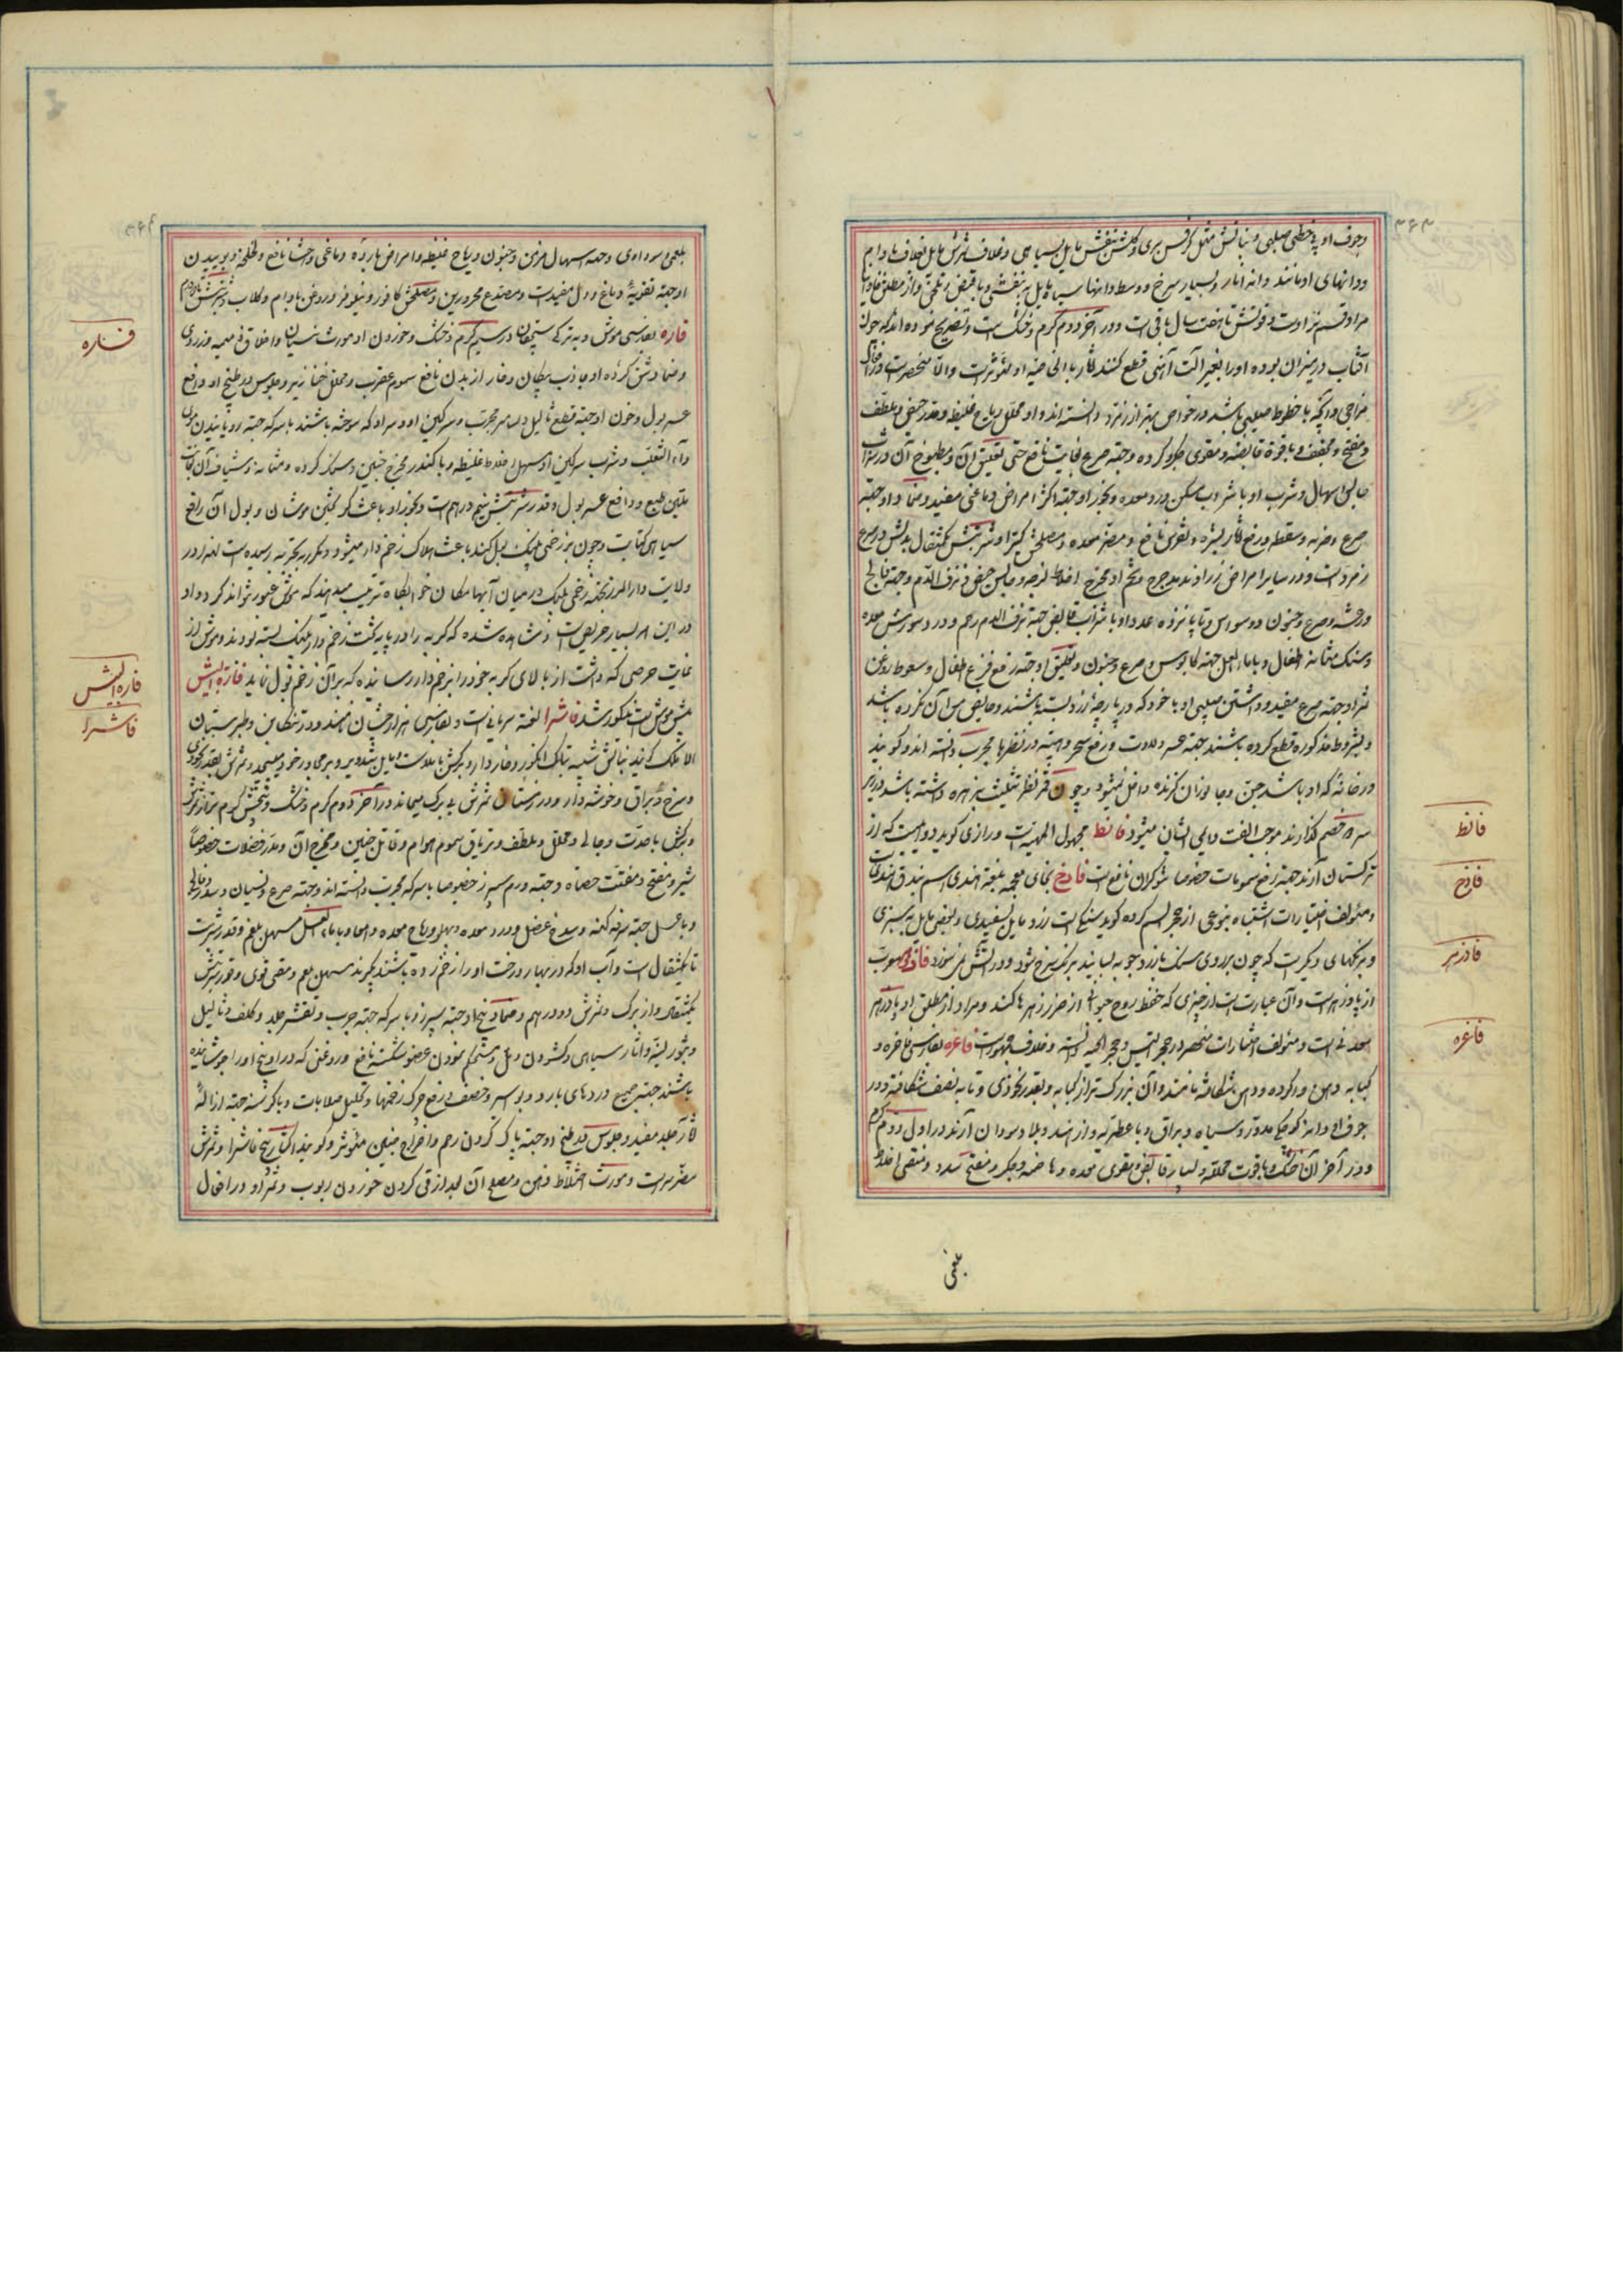 وجوف او پر خطی صلیبی و نباتش مثل کرفس بری و گلش بنفش مایل بسیاهی و غلاف ثمرش مایل بغلاف بادام
ودانهای او مانند دانه انار و بسیار سرخ و وسط دانها سیاه مایل به بنفشی و با قبض و تلخی و از مطلق فاوانیا
مراد قسم نر اوست و قوتش تا هفت سال باقی است و در آخر دوم گرم و خشک است و تصریح نموده اند که چون
آفتاب در میزان بوده او را بغیر آلت آهنی قطع کنند آثار بالخاصیه او مؤثر است والا منحصر است در افعال
مزاجی و آنچه با خطوط صلیبی باشد در خواص بهتر از زمرد دانسته اند و او محلل ریاح غلیظه و مدر حیض و ملطف
و مفتح و مجفف و با قوة قابضه و مقوی جگر و گرده و جهة صرع بغایت نافع حتی تعلیق آن و مطبوخ آن در شراب
حابس اسهال و شرب او با شراب مسکن درد معده و بخور او جهة اکثر امراض دماغی مفید و ضماد او جهة
صرع و ضربه و سقطه و رفع آثار بشره و نقرس نافع و مضر معده و مصلحش کتیرا و شربتش یکمثقال بدلش در صرع
زمرد است و در سایر امراض زراوند مدحرج و تخم او مخرج اخلاط لزجه و حابس حیض و نزف الدم و جهة فالج
و رعشه و صرع و جنون و وسواس و تا پانزده عدد او با شراب قابض جهة نزف الدم رحم و درد و سوزش معده
و سنگ مثانه اطفال و با ماء العسل جهة کابوس و صرع و جنون و تعلیق او جهة رفع فزع اطفال و سعوط روغن
ثمر او جهة صرع مفید و داشتن صلیبی او با خود که در پارچه زرد بسته باشند و حایض مس آن نکرده باشد
و بشروط مذکوره قطع کرده باشند جهة عسر ولادت و رفع سحر و هیبت در نظرها مجرب دانسته اند و گویند
در خانه که او باشد جن و جانوران گزنده داخل نمیشود و چون قمر نظر تثلیث بزهره داشته باشد در زیر
سر دو خصم گذارند موجب الفت دایمی ایشان میشود فانط مجهول الماهیت و رازی گوید دوائیست که از
ترکستان آرند جهة رفع سمومات خصوصا شوکران نافع است فادخ بخای معجمه بلغة هندی اسم بندق هندیست
و مؤلف اختیارات اشتباه بنوعی از حجر السم کرده گوید سنگیست زرد مایل بسفیدی و بعضی مایل به سبزی
و برنگهای دیگر است که چون بر روی سنک با زردچوبه بسایند برنگ سرخ شود و در آتش نسوزد فادزهر معرب
از پادزهر است و آن عبارت است از چیزی که حفظ روح حیوانی از ضرر زهرها کند و مراد از مطلق او پادزهر
معدنی است و مؤلف اختیارات منحصر در حجر التیس و حجر الحیه دانسته و خلاف مشهور است فاغره بفارسی فاخره و
کبابه دهن وا کرده و دهن شکافته نامند و آن بزرگ تر از کبابه و بقدر نخودی و تا به نصف شکافته و در
جوف او دانه کوچک مدور و سیاه و براق و با عطریه و از هند و بلاد سودان آرند در اول دوم گرم
و در آخر آن خشک و با قوت محلله و بسیار قابض و مقوی معده و هاضمه و جگر و مفتح سدد و منقی اخلاط
بلغمی
فانط
فادخ
فادزهر
فاغره
بلغمی و سوداوی و جهة اسهال مزمن و جنون و ریاح غلیظه و امراض بارده دماغی و احشا نافع و طلا و بوئیدن
او جهة تقویة دماغ و دل مفید است و مصدع محرورین و مصلحش کافور و نیلوفر و روغن بادام و گلاب و شربتش تا دو درم
فاره بفارسی موش و به ترکی سیچقان در سیم گرم و خشک و خوردن او مورث نسیان و اخلاق ذمیمه
و ضماد شق کرده او جاذب پیکان و خار از بدن نافع سموم عقرب و محلل خنازیر و جلوس در طبیخ او رافع
عسر بول و خون او جهة قطع ثآلیل و مسامیر مجرب و سرگین او و سر او که سوخته باشند با سرکه جهة رویانیدن موی
داء الثعلب و شرب سرگین او مسهل اخلاط غلیظه و با کندر مخرج جنین و سنگ گرده و مثانه و شیاف آن باعث
تلیین طبع و رافع عسر بول و قدر شربتش نیم درهم است و بخور او باعث گریختن موشان و بول آن رافع
سیاهی کتابت و چون بر زخمی پلنک بول کند باعث هلاک زخم دار میشود و مکرر به تجربه رسیده است لهذا در
ولایت دار المرز بجهة زخمی پلنک در میان آبها مکان خوابگاه ترتیب میدهند که موش عبور نتواند کرد و او
در این امر بسیار حریص است و مشاهده شده که گربه را در پایه تخت زخم دار پلنک بسته بودند و موش از
غایت حرصی که داشت از بالای گربه خود را بزخم دار رسانیده که بر آن زخم بول نماید فارة البیش
بیش موش است مذکور شد فاشرا لغت سریانی است و بفارسی هزار جشان نامند و در تنکابن و طبرستان
الاملک گویند نباتش شبیه بتاک انگور و خاردار و برگش با ملاست و مایل بتدویر و بر مجاور خود میپیچد و ثمرش بقدر نخودی
و سرخ و براق و خوشه دار و در زمستان ثمرش بی برگ میماند در آخر دوم گرم و خشک و بیخش گرم تر از ثمرش
و برگش با حدت و جالی و محلل و ملطف و تریاق سموم هوام و قاتل جنین و مخرج آن و مدر فضلات خصوصاً
شیر و مفتح و مفتت حصاة و جهة ورم سپرز خصوصا با سرکه مجرب دانسته اند و جهة صرع و نسیان و سدر و فالج
و با عسل جهة سرفه کهنه و درد معده و پهلو و ریاح معده و امعا و با ماء العسل مسهل بلغم و قدر شربت
تا یکمثقال است و آب او که در بهار درخت او را زخم زده باشند بگیرند مسهل بلغم و مقئ قوی و قدر شربتش
یکمثقال و از برگ و ثمرش دو درهم و ضماد بیخ او جهة سپرز و با سرکه جهة جرب و تقشر جلد و کلف و ثآلیل
و بثور لبنیه و آثار سیاهی و گشودن دمل و مستحکم نمودن عضو شکسته نافع و روغنی که در او بیخ او را جوشانیده
باشند جهة جمیع دردهای بارد و بواسیر و ضعف و رفع چرک زخمها و تحلیل صلابات و با کرسنه جهة ازالة
آثار جلد مفید و جلوس در طبیخ او جهة پاک کردن رحم و اخراج جنین مؤثر و گویند اکثار بیخ فاشرا و ثمرش
مضر سر است و مورث اختلاط ذهن و مصلح آن بعد از قی کردن خوردن ربوب و ثمر او در افعال
فاره
فارة البیش
فاشرا